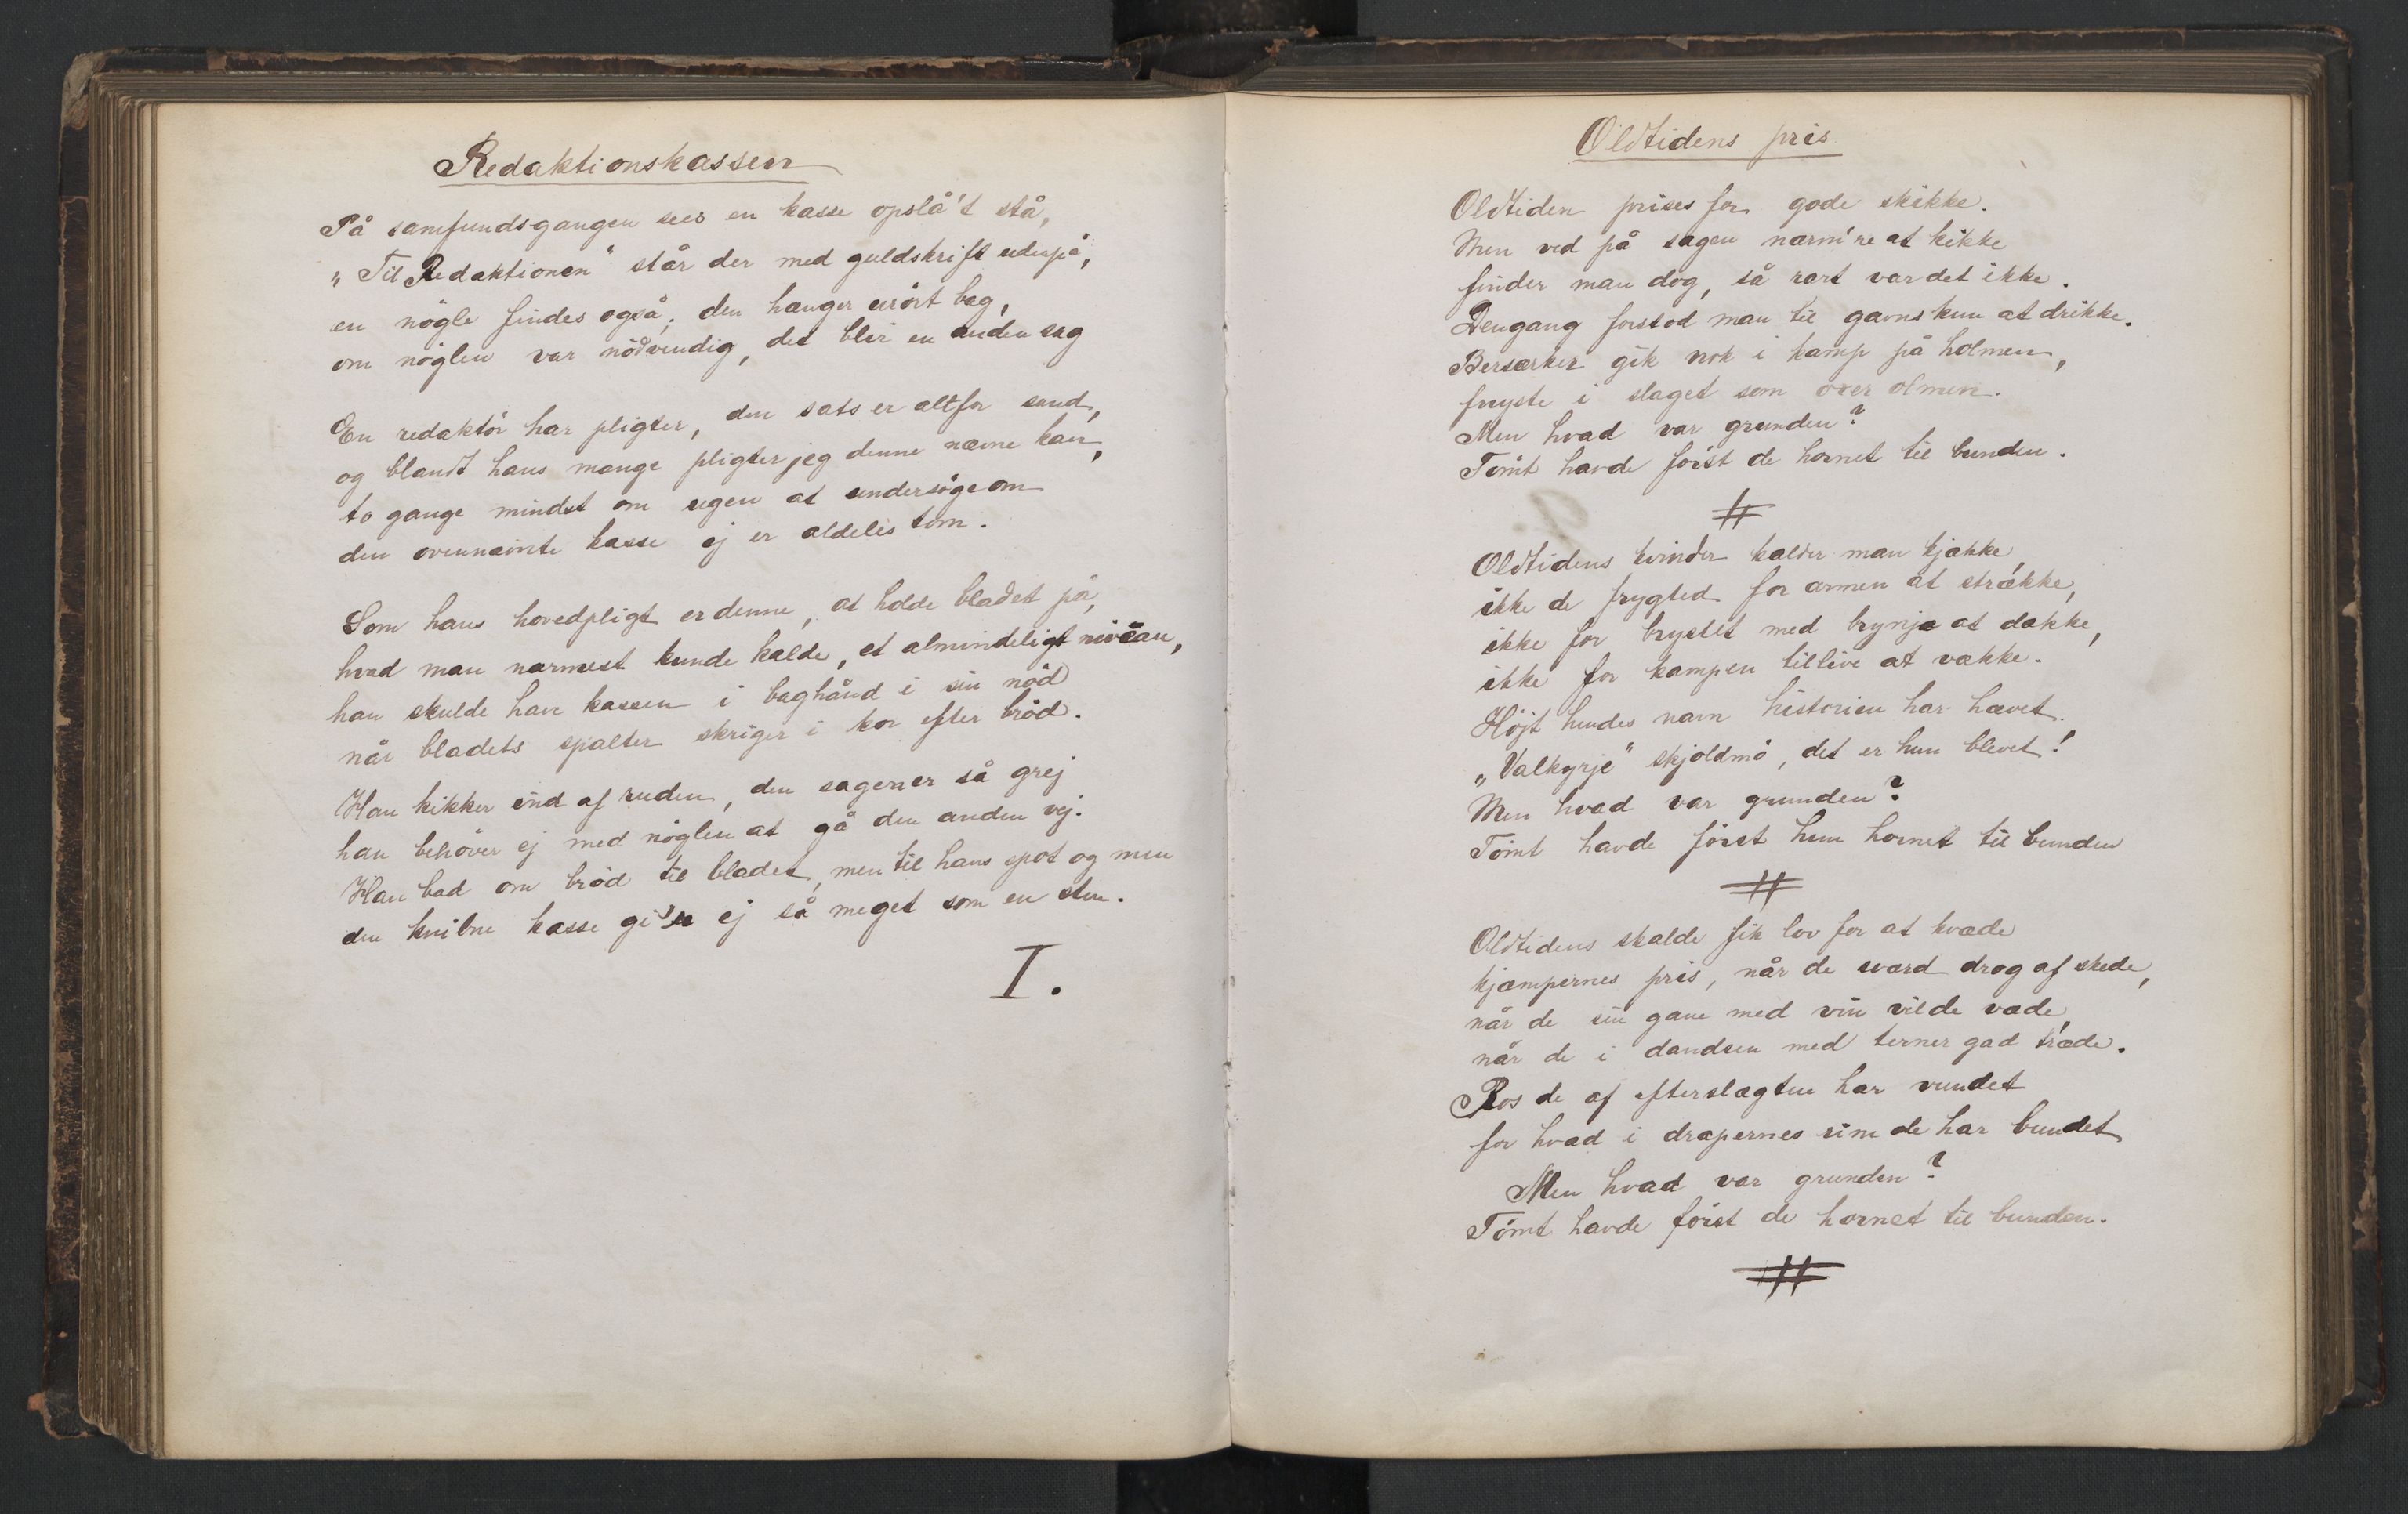 Redaktionskassen
På samfundsgangen sees en kasse opslå't stå,
„Til Redaktionen" står der med guldskrift udenpå,
en nögle findes også; den hænger urört bag,
om nöglen var nödvendig, det blir en anden sag
En redaktör har pligter, den sats er altfor sand,
og blandt hans mange pligter jeg denne nævne kan,
to gange mindst om ugen at undersöge om
den ovennævnte kasse ej er aldeles tom.
Som hans hovedpligt er denne, at holde bladet på,
hvad man nærmest kunde kalde, et almindeligt niveau,
han skulde have kassen i baghånd i sin nöd
når bladets spalter skriger i kor efter bröd.
Han kikker ind af ruden, den sagen er så grej
han behöver ej med nöglen at gå den anden vej.
Han bad om bröd til bladet, men til hans spot og men
den knibne kasse gi'r ej så meget som en sten.
I.
Oldtidens pris.
Oldtiden prises for gode skikke.
Men ved på sagen nærm're at kikke
finder man dog, så rart var det ikke.
Dengang forstod man til gavns kun at drikke.
Bersærker gik nok i kamp på holmen,
fnyste i slaget som over olmen.
Men hvad var grunden?
Tömt havde först de hornet til bunden.
#
Oldtidens kvinder kalder man kjække,
ikke de frygted for armen at strække,
ikke for brystet med brynje at dække,
ikke for kampen tillive at vække.
Höjt hendes navn historien har hævet.
„Valkyrje" skjoldmö, det er hun blevet!
Men hvad var grunden?
Tömt havde först hun hornet til bunden
#
Oldtidens skalde fik lov for at kvæde
kjæmpernes pris, når de sværd drog af skede,
når de sin gane med vin vilde væde,
når de i dandsen med terner gad træde.
Ros de af efterslægten har vundet
for hvad i drapernes rim de har bundet
Men hvad var grunden?
Tömt havde först de hornet til bunden.
#